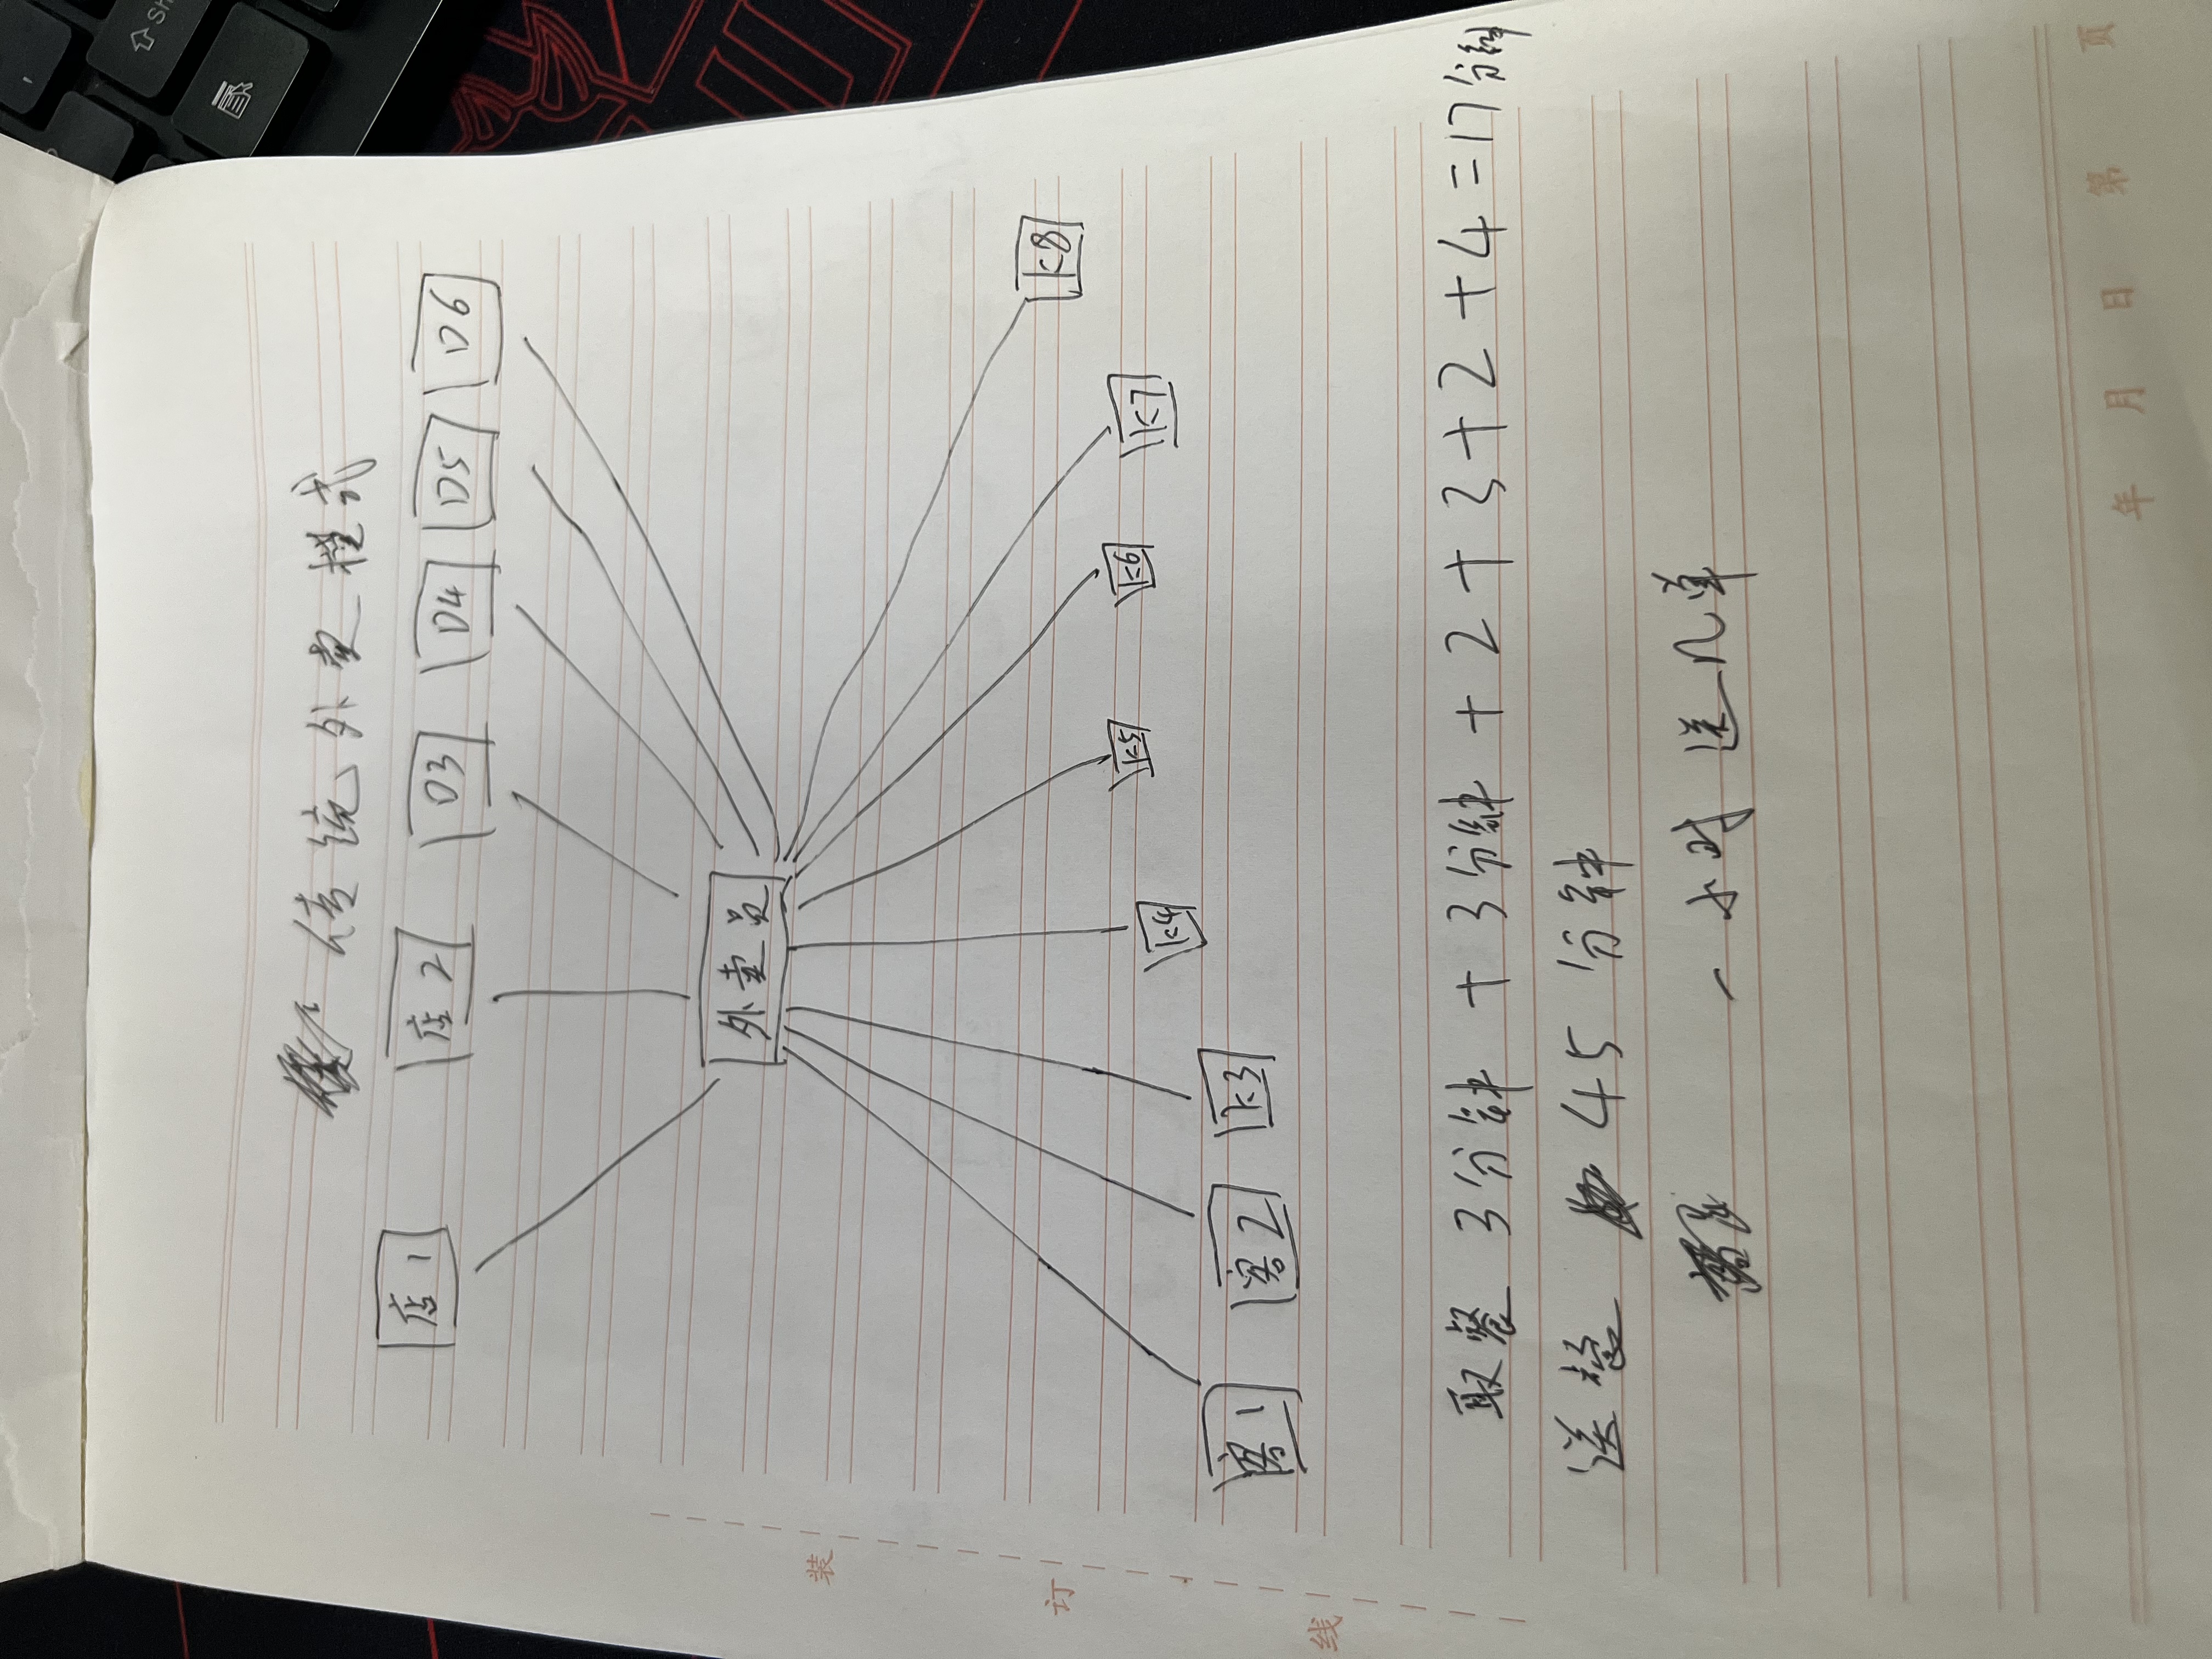 传统外卖模式
店1 店2 D3 D4 D5 D6
外卖员
客1 客2 K3 K4 K5 K6 K7 K8
取餐 3分钟 + 3分钟 + 2 + 3 + 2 + 4 = 17分钟
送餐 45分钟
一小时送几单
年 月 日 第 页
装
订
线
Sh